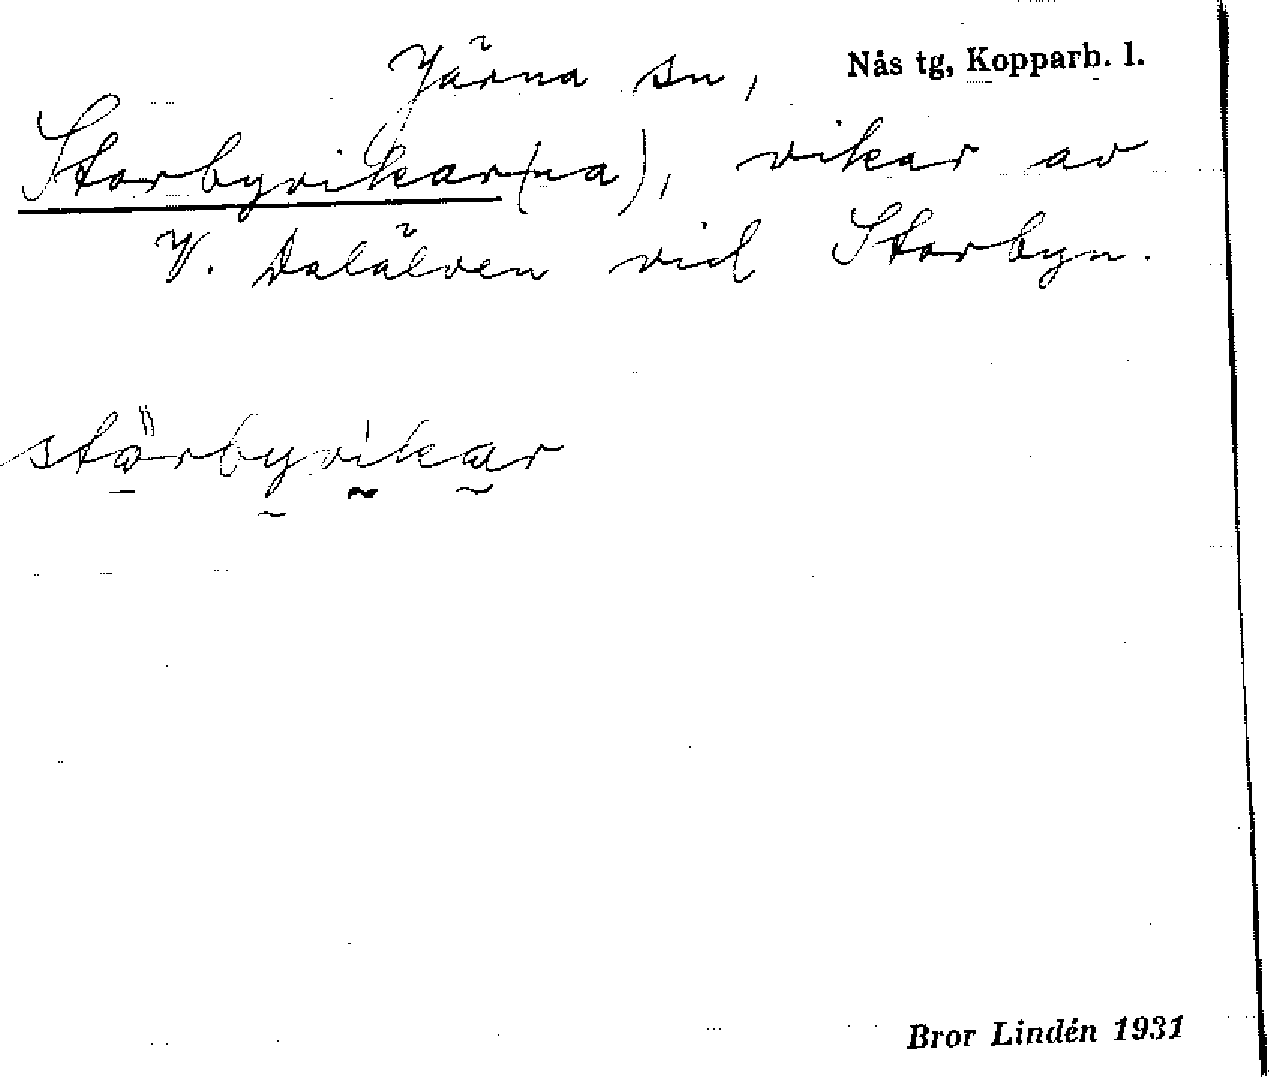 Järna sn, Nås tg, Kopparb. l.
Storbyvikar(na), vikar av
V. Dalälven vid Storbyn.
störbyvikar
Bror Lindén 1931